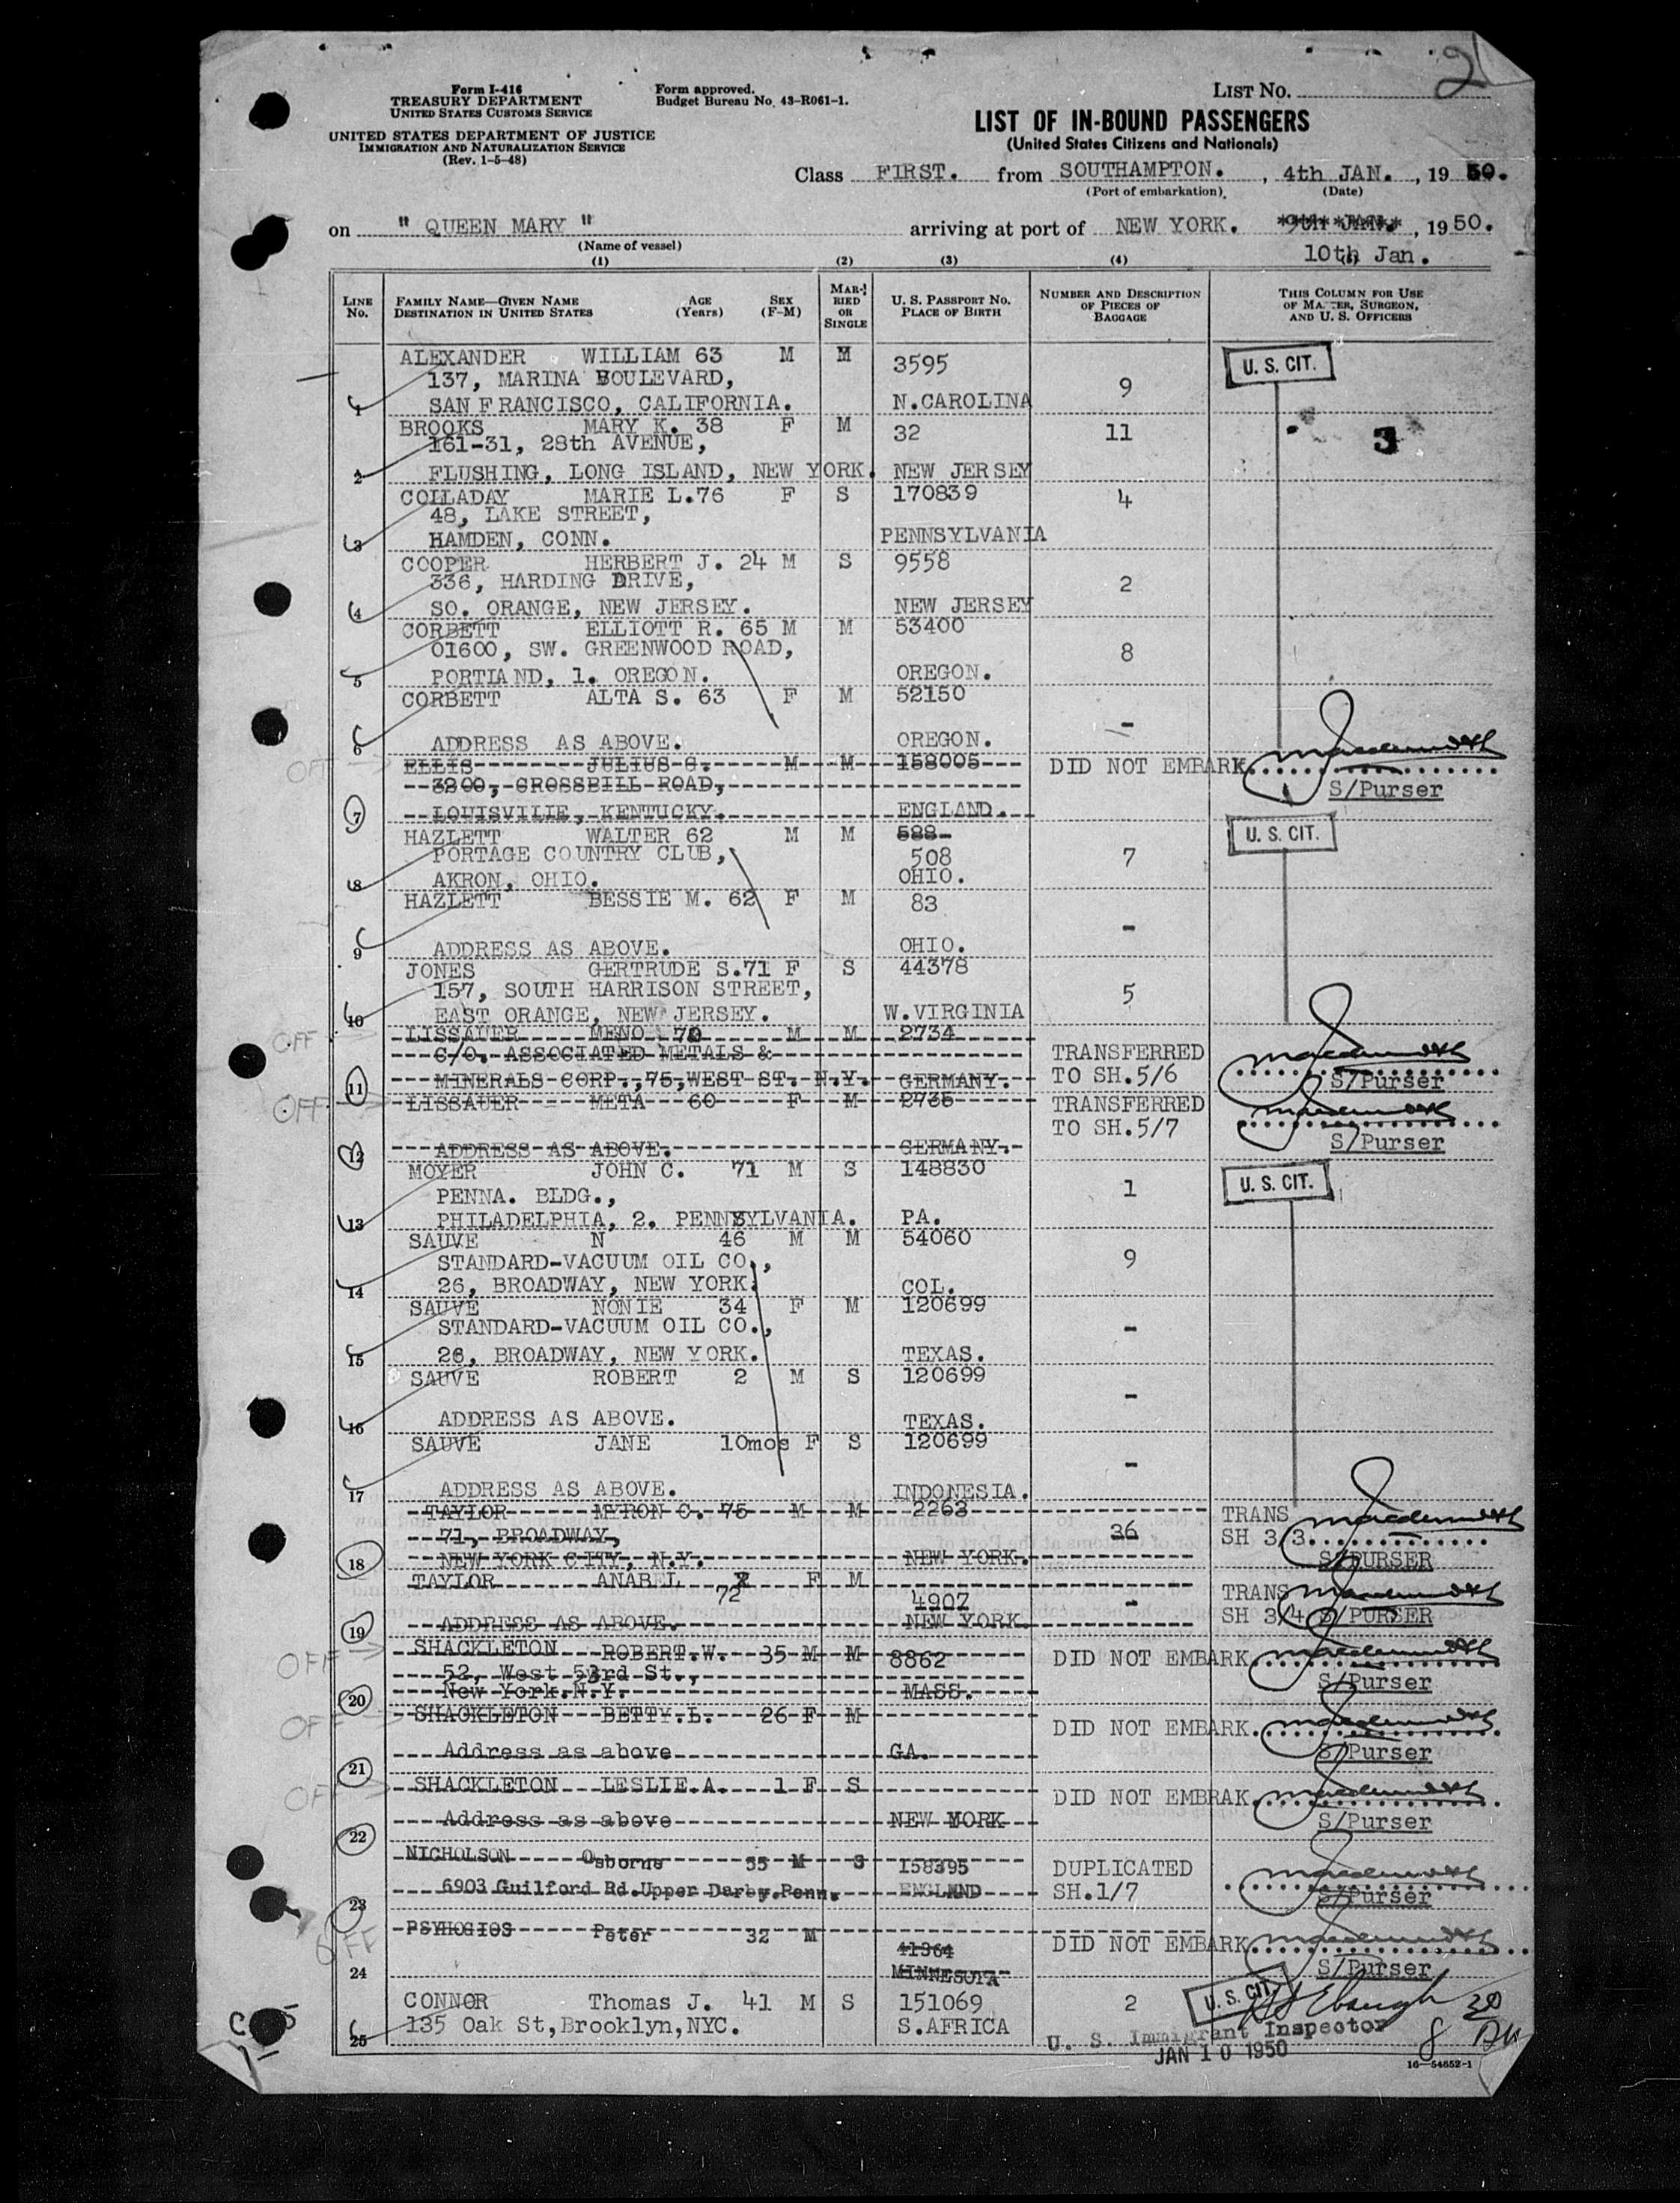 2
Form I-416
TREASURY DEPARTMENT
UNITED STATES CUSTOMS SERVICE
UNITED STATES DEPARTMENT OF JUSTICE
IMMIGRATION AND NATURALIZATION SERVICE
(Rev. 1-5-48)
Form approved.
Budget Bureau No. 43-R061-1.
LIST No.
LIST OF IN-BOUND PASSENGERS
(United States Citizens and Nationals)
Class FIRST. from SOUTHAMPTON. , 4th JAN. , 19 50.
(Port of embarkation) (Date)
on " QUEEN MARY " arriving at port of NEW YORK. 9th JAN. , 19 50.
(Name of vessel) 10th Jan.
(1) (2) (3) (4) (5)
LINE No. FAMILY NAME—GIVEN NAME DESTINATION IN UNITED STATES AGE (Years) SEX (F-M) MARRIED OR SINGLE U. S. PASSPORT No. PLACE OF BIRTH NUMBER AND DESCRIPTION OF PIECES OF BAGGAGE THIS COLUMN FOR USE OF MASTER, SURGEON, AND U. S. OFFICERS
ALEXANDER WILLIAM 63 M M 3595 U. S. CIT.
137, MARINA BOULEVARD, 9
1 SAN FRANCISCO, CALIFORNIA. N.CAROLINA
BROOKS MARY K. 38 F M 32 11 3
161-31, 28th AVENUE,
2 FLUSHING, LONG ISLAND, NEW YORK. NEW JERSEY
COLLADAY MARIE L.76 F S 170839 4
48, LAKE STREET,
3 HAMDEN, CONN. PENNSYLVANIA
COOPER HERBERT J. 24 M S 9558
336, HARDING DRIVE, 2
4 SO. ORANGE, NEW JERSEY. NEW JERSEY
CORBETT ELLIOTT R. 65 M M 53400
01600, SW. GREENWOOD ROAD, 8
5 PORTLAND, 1. OREGON. OREGON.
CORBETT ALTA S. 63 F M 52150
-
6 ADDRESS AS ABOVE. OREGON.
OFF ELLIS JULIUS C. M M 158005 DID NOT EMBARK.
3200, CROSSBILL ROAD, S/Purser
7 LOUISVILLE, KENTUCKY. ENGLAND.
HAZLETT WALTER 62 M M 588 U. S. CIT.
PORTAGE COUNTRY CLUB, 508 7
8 AKRON, OHIO. OHIO.
HAZLETT BESSIE M. 62 F M 83
-
9 ADDRESS AS ABOVE. OHIO.
JONES GERTRUDE S.71 F S 44378
157, SOUTH HARRISON STREET, 5
10 EAST ORANGE, NEW JERSEY. W.VIRGINIA
OFF LISSAUER MENO 70 M M 2734
C/O. ASSOCIATED METALS & TRANSFERRED
11 MINERALS CORP.,75,WEST ST. N.Y. GERMANY. TO SH.5/6 S/Purser
OFF LISSAUER META 60 F M 2735 TRANSFERRED
TO SH.5/7
12 ADDRESS AS ABOVE. GERMANY. S/Purser
MOYER JOHN C. 71 M S 148830 U. S. CIT.
PENNA. BLDG., 1
13 PHILADELPHIA, 2. PENNSYLVANIA. PA.
SAUVE N 46 M M 54060
STANDARD-VACUUM OIL CO., 9
14 26, BROADWAY, NEW YORK. COL.
SAUVE NONIE 34 F M 120699
STANDARD-VACUUM OIL CO., -
15 26, BROADWAY, NEW YORK. TEXAS.
SAUVE ROBERT 2 M S 120699
-
16 ADDRESS AS ABOVE. TEXAS.
SAUVE JANE 10mos F S 120699
-
17 ADDRESS AS ABOVE. INDONESIA.
TAYLOR MYRON C. 75 M M 2263 TRANS
71, BROADWAY, 36 SH 3/3.
18 NEW YORK CITY, N.Y. NEW YORK. S/PURSER
TAYLOR ANABEL 72 F M 4907 - TRANS
19 ADDRESS AS ABOVE. NEW YORK. SH 3/4 S/PURSER
OFF SHACKLETON ROBERT.W. 35 M M 8862 DID NOT EMBARK.
52, West 53rd St., S/Purser
20 New York.N.Y. MASS.
OFF SHACKLETON BETTY.L. 26 F M DID NOT EMBARK.
21 Address as above GA. S/Purser
OFF SHACKLETON LESLIE.A. 1 F S DID NOT EMBRAK.
22 Address as above NEW YORK S/Purser
NICHOLSON Osborne 35 M S 158395 DUPLICATED
23 6903 Guilford Rd.Upper Darby.Penn. ENGLAND SH.1/7 S/Purser
OFF PSYHOGIOS Peter 32 M 41364 DID NOT EMBARK.
24 MINNESOTA S/Purser
CONNOR Thomas J. 41 M S 151069 2 U. S. CIT.
25 135 Oak St,Brooklyn,NYC. S.AFRICA
U. S. Immigrant Inspector 8
JAN 10 1950
16—54652-1